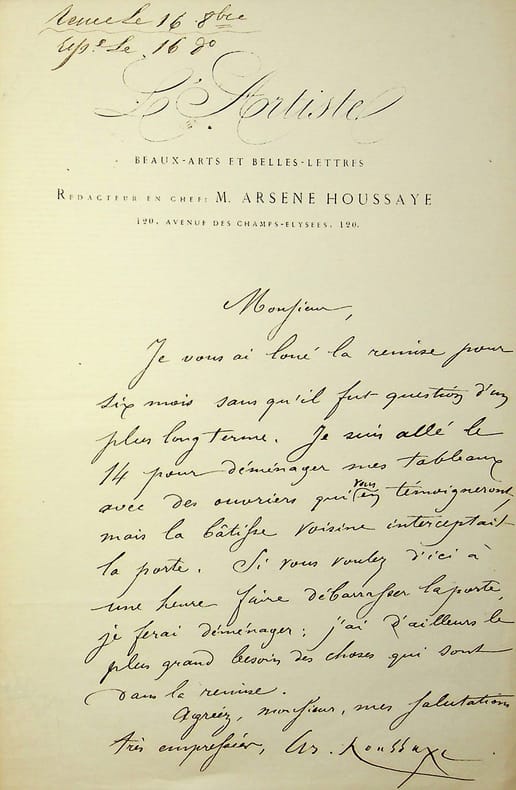 Reçue Le 16 8bre
Rép.e Le 16 do
L'Artiste
BEAUX-ARTS ET BELLES-LETTRES
REDACTEUR EN CHEF: M. ARSENE HOUSSAYE
120, AVENUE DES CHAMPS-ELYSEES, 120.
Monsieur,
Je vous ai loué la remise pour
six mois sans qu'il fut question d'un
plus long terme. Je suis allé le
14 pour déménager mes tableaux
avec des ouvriers qui vous en témoigneront,
mais la bâtisse voisine interceptait
la porte. Si vous voulez d'ici à
une heure faire débarrasser la porte,
je ferai déménager; j'ai d'ailleurs le
plus grand besoin des choses qui sont
dans la remise.
Agréez, monsieur, mes salutations
très empressées, Ar. Houssaye